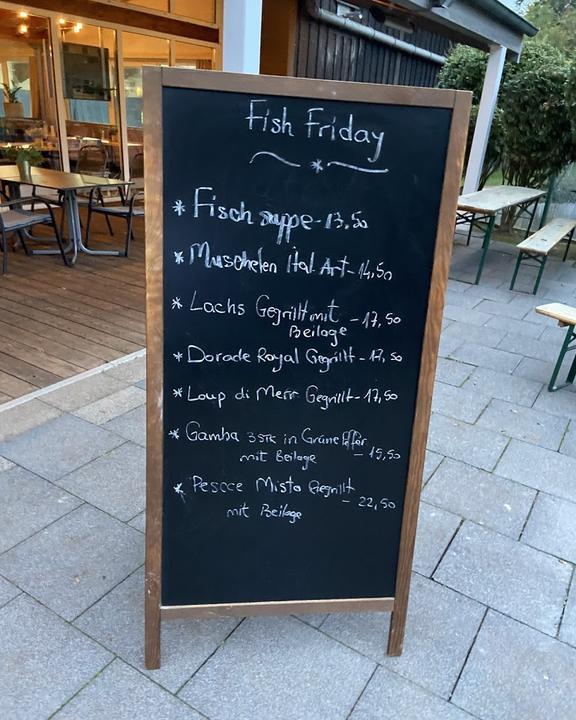 Fish Friday
* Fisch suppe - 13,50
* Muschelen Ital Art - 14,50
* Lachs Gegrillt mit - 17,50
Beilage
* Dorade Royal Gegrillt - 17,50
* Loup di Merr Gegrillt - 17,50
* Gamba 3 STK in Grüne Pffer
mit Beilage - 15,50
* Pescce Misto Gegrillt
mit Beilage - 22,50